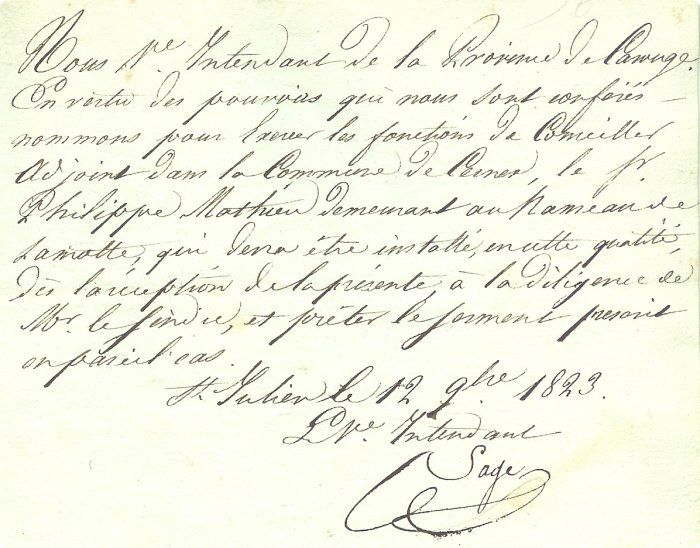 Nous Ve. Intendant de la Province de Carouge.
En vertu des pouvoirs qui nous sont conférés –
nommons pour Exercer les fonctions de Conseiller
Adjoint dans la Commune de Cernex, le Sr.
Philippe Mathieu demeurant au Hameau de
Lamotte, qui devra être installé, en cette qualité,
dès la réception de la présente, à la diligence de
Mr. le Sindic, et prêter le serment prescrit
en pareil cas.
St. Julien le 12 9bre 1823.
Le Ve. Intendant
Sage